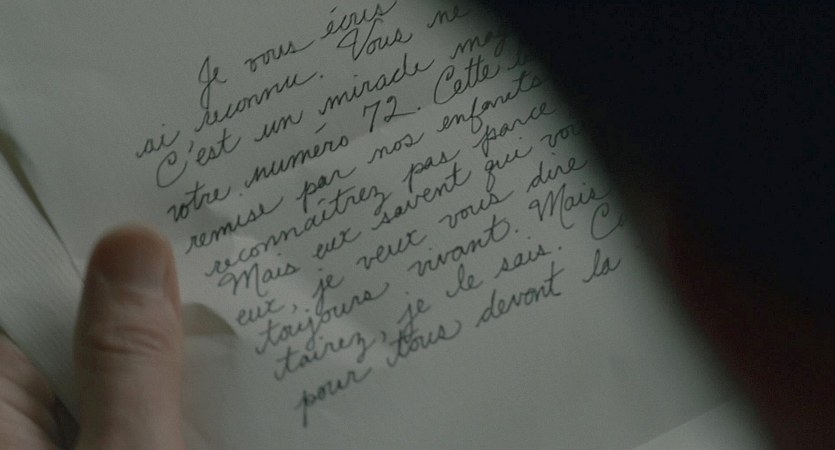 Je vous écris
ai reconnu. Vous ne
C'est un miracle
votre numéro 72. Cette
remise par nos enfants
reconnaîtrez pas parce
Mais eux savent qui
eux, je veux vous dire
toujours vivant. Mais
tairez, je le sais.
pour tous devont la